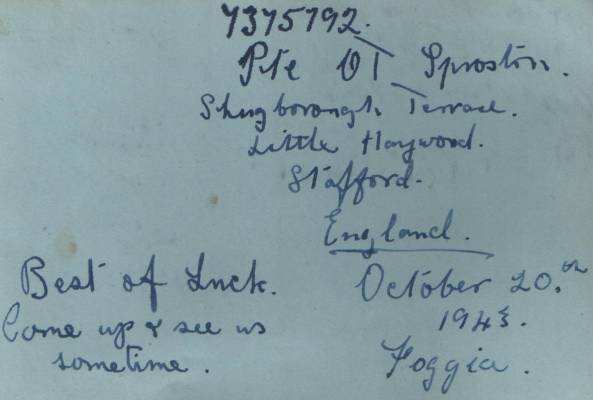 7375792.
Pte Sproston.
Shugborough Terrace.
Little Haywood.
Stafford.
England.
Best of Luck.
Come up & see us
sometime.
October 20.th
1943.
Foggia.